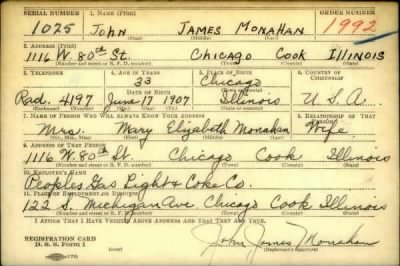 SERIAL NUMBER 1. NAME (Print) ORDER NUMBER
1025 JOHN JAMES MONAHAN 1992
(First) (Middle) (Last)
2. ADDRESS (Print)
1116 W. 80th St. CHICAGO COOK ILLINOIS
(Number and street or R. F. D. number) (Town) (County) (State)
3. TELEPHONE 4. AGE IN YEARS 5. PLACE OF BIRTH 6. COUNTRY OF CITIZENSHIP
33 Chicago
DATE OF BIRTH (Town or county)
Rad. 4197 June 17 1907 Illinois U.S.A.
(Exchange) (Number) (Mo.) (Day) (Yr.) (State or country)
7. NAME OF PERSON WHO WILL ALWAYS KNOW YOUR ADDRESS 8. RELATIONSHIP OF THAT PERSON
Mrs. Mary Elizabeth Monahan Wife
(Mr., Mrs., Miss) (First) (Middle) (Last)
9. ADDRESS OF THAT PERSON
1116 W. 80th St. Chicago Cook Illinois
(Number and street or R. F. D. number) (Town) (County) (State)
10. EMPLOYER'S NAME
Peoples Gas Light & Coke Co.
11. PLACE OF EMPLOYMENT OR BUSINESS
122 S. Michigan Ave. Chicago Cook Illinois
(Number and street or R. F. D. number) (Town) (County) (State)
I AFFIRM THAT I HAVE VERIFIED ABOVE ANSWERS AND THAT THEY ARE TRUE.
REGISTRATION CARD
D. S. S. Form 1 John James Monahan
(Registrant's signature)